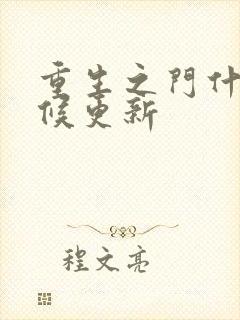 重生之門什
候更新
程文亮